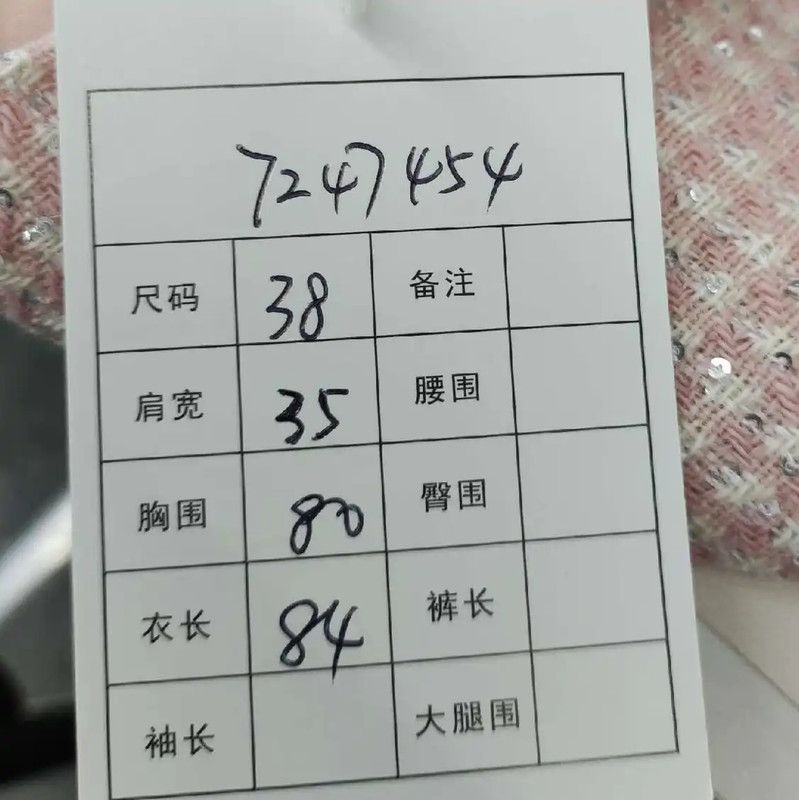 7247454
尺码 38 备注
肩宽 35 腰围
胸围 80 臀围
衣长 84 裤长
袖长 大腿围